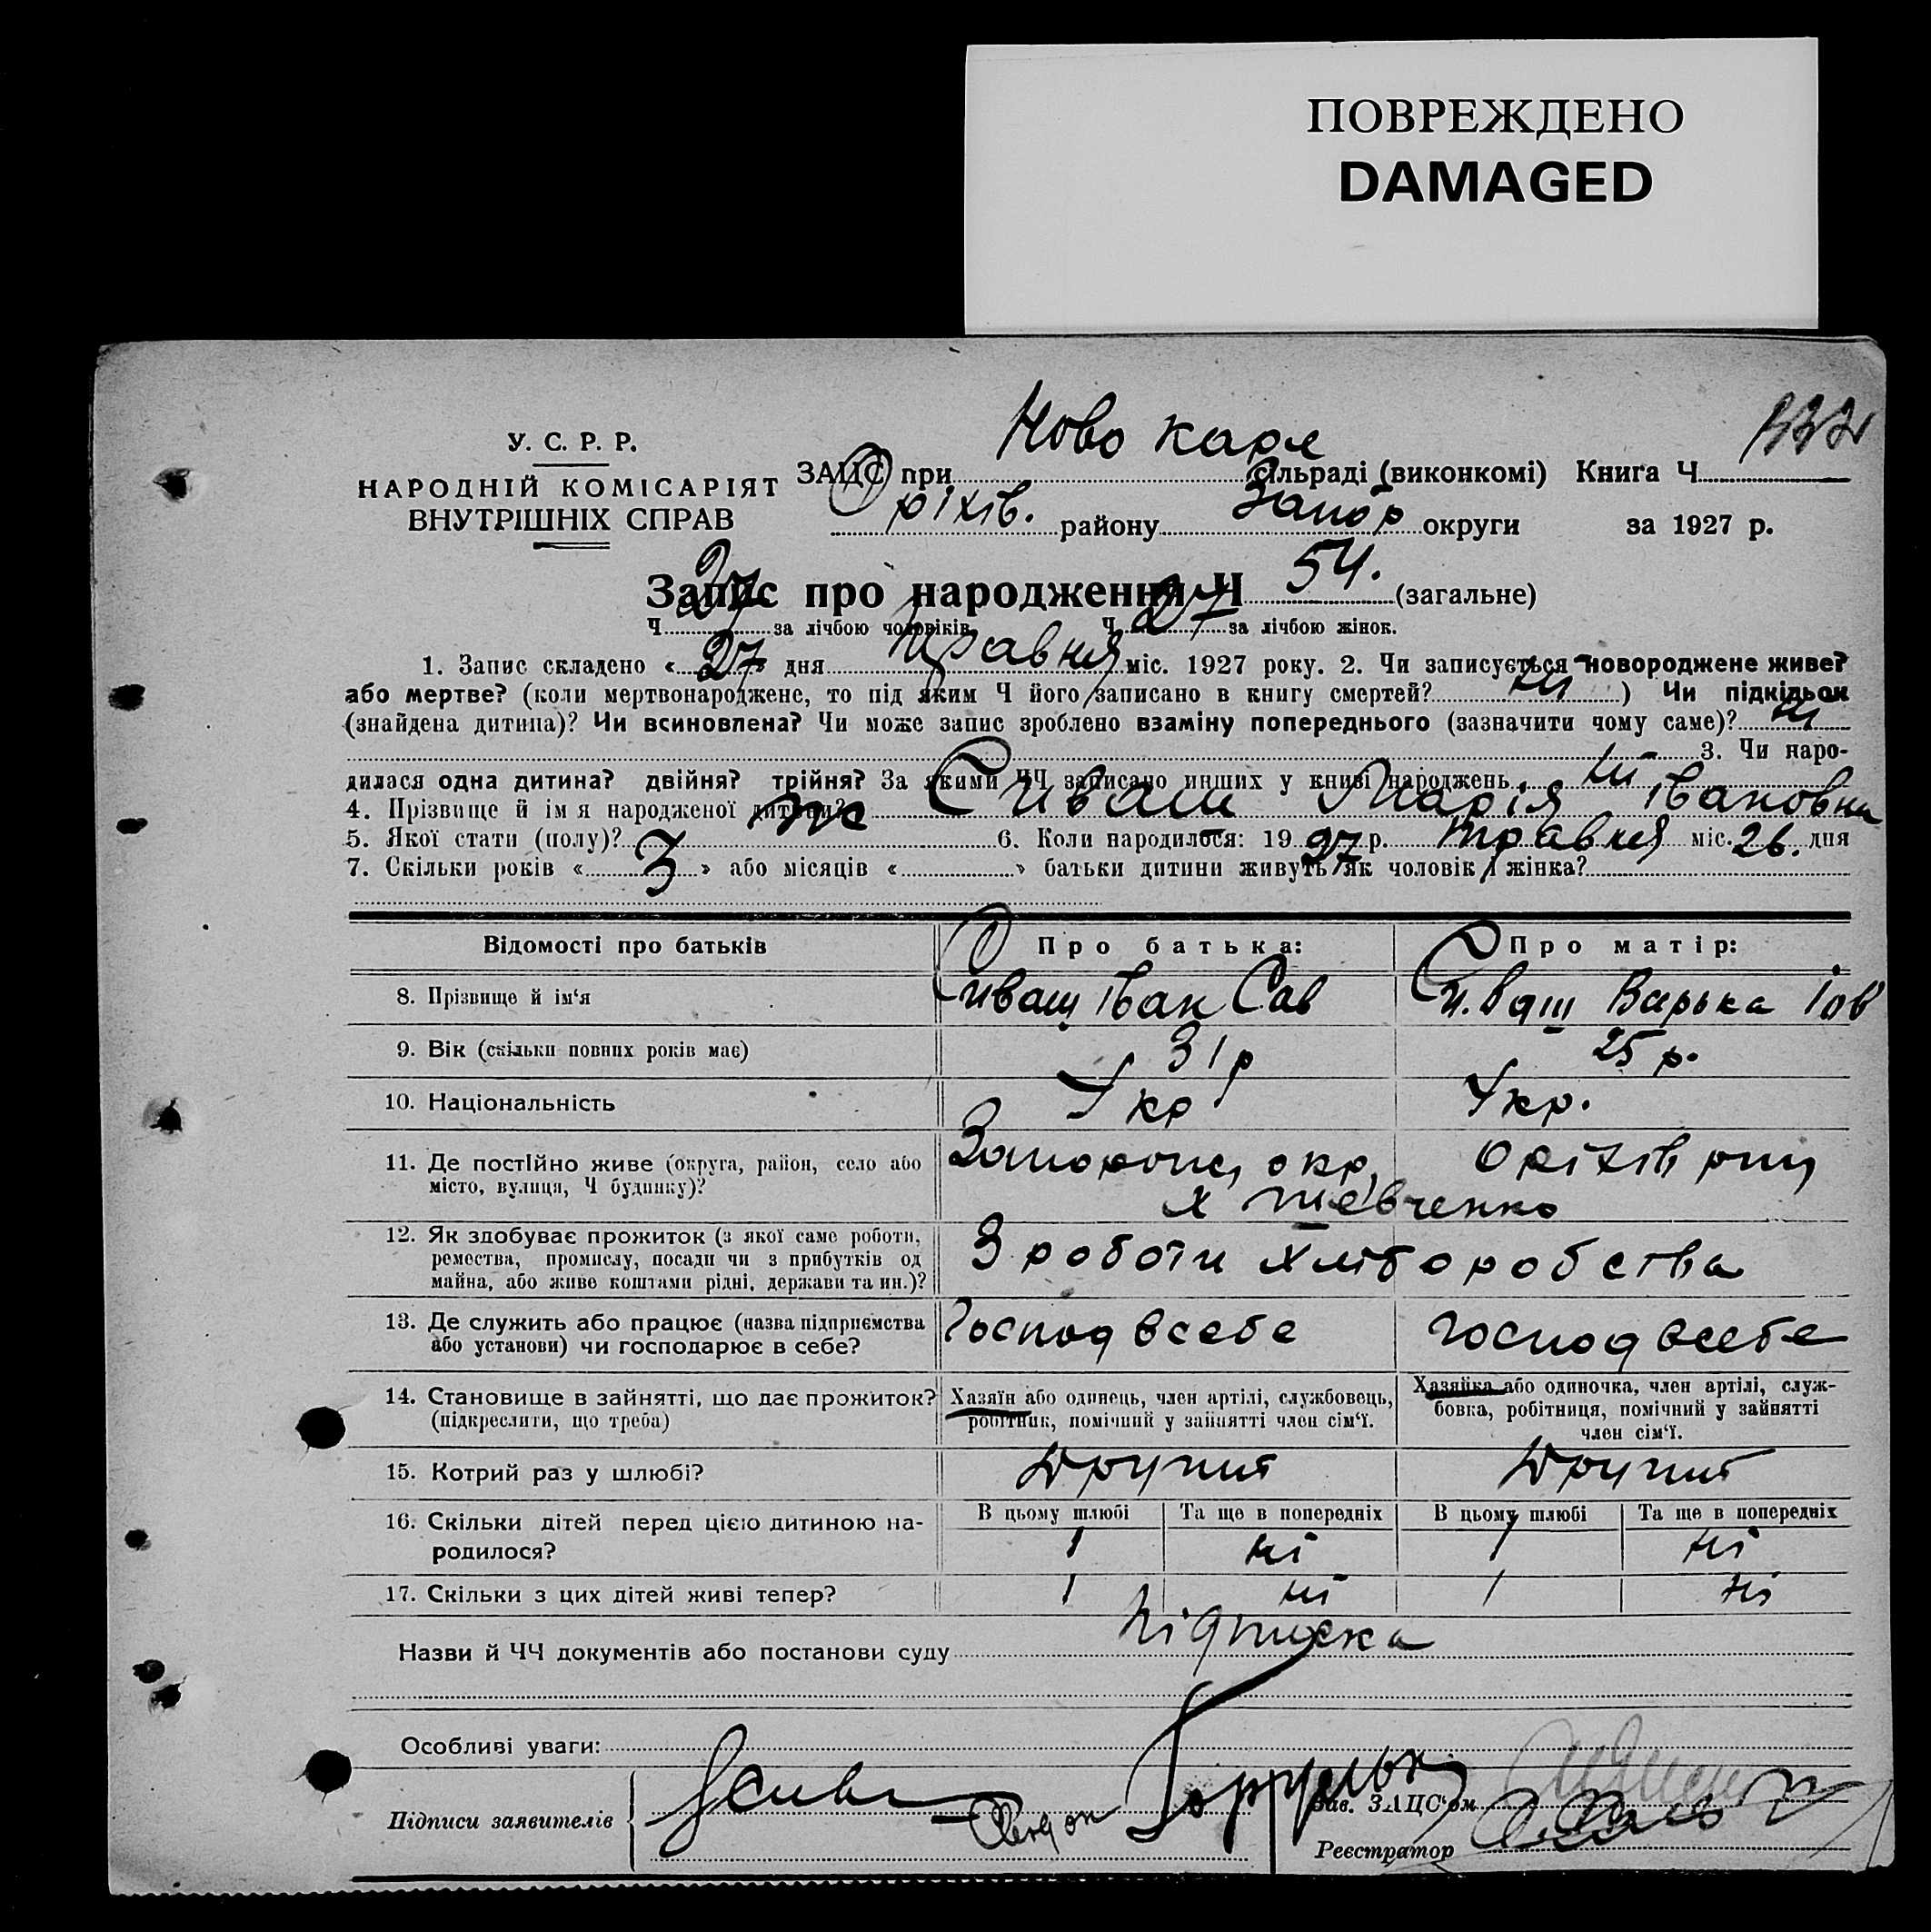 ПОВРЕЖДЕНО
DAMAGED
У. С. Р. Р.
НАРОДНІЙ КОМІСАРІЯТ
ВНУТРІШНІХ СПРАВ
ЗАЦС при Ново Карл сільраді (виконкомі) Книга Ч
Оріхів. району Запор округи за 1927 р.
Запис про народження Ч 54. (загальне)
Ч за лічбою чоловіків Ч 27 за лічбою жінок.
1. Запис складено « 27 » дня травня міс. 1927 року. 2. Чи записується новороджене живе?
або мертве? (коли мертвонароджене, то під яким Ч його записано в книгу смертей? ні ) Чи підкідьок
(знайдена дитина)? Чи всиновлена? Чи може запис зроблено взаміну попереднього (зазначити чому саме)? ні
3. Чи наро-
дилася одна дитина? двійня? трійня? За якими ЧЧ записано инших у книзі народжень ні
4. Прізвище й ім я народженої дитини? Сиваш Марія Івановна
5. Якої стати (полу)? ж 6. Коли народилося: 19 27 р. травня міс. 26. дня
7. Скільки років « 3 » або місяців « » батьки дитини живуть як чоловік і жінка?
Відомості про батьків Про батька: Про матір:
8. Прізвище й ім'я Сиваш Іван Сав Сиваш Варька Іов
9. Вік (скільки повних років має) 31 р 25 р.
10. Національність Укр Укр.
11. Де постійно живе (округа, район, село або Запорож, окр, Оріхів
місто, вулиця, Ч будинку)? х Шевченко
12. Як здобуває прожиток (з якої саме роботи, З роботи хліборобства
ремества, промислу, посади чи з прибутків од
майна, або живе коштами рідні, держави та ин.)?
13. Де служить або працює (назва підприємства Господ всебе господ всебе
або установи) чи господарює в себе?
14. Становище в зайнятті, що дає прожиток? Хазяїн або одинець, член артілі, службовець, Хазяйка або одиночка, член артілі, служ-
(підкреслити, що треба) робітник, помічний у зайнятті член сім'ї. бовка, робітниця, помічний у зайнятті
член сім'ї.
15. Котрий раз у шлюбі? Другий Другий
В цьому шлюбі Та ще в попередніх В цьому шлюбі Та ще в попередніх
16. Скільки дітей перед цією дитиною на-
родилося? 1 ні 1 ні
17. Скільки з цих дітей живі тепер? 1 ні 1 ні
Назви й ЧЧ документів або постанови суду Підписка
Особливі уваги:
Підписи заявителів
Зав. ЗАЦС'ом
Реєстратор